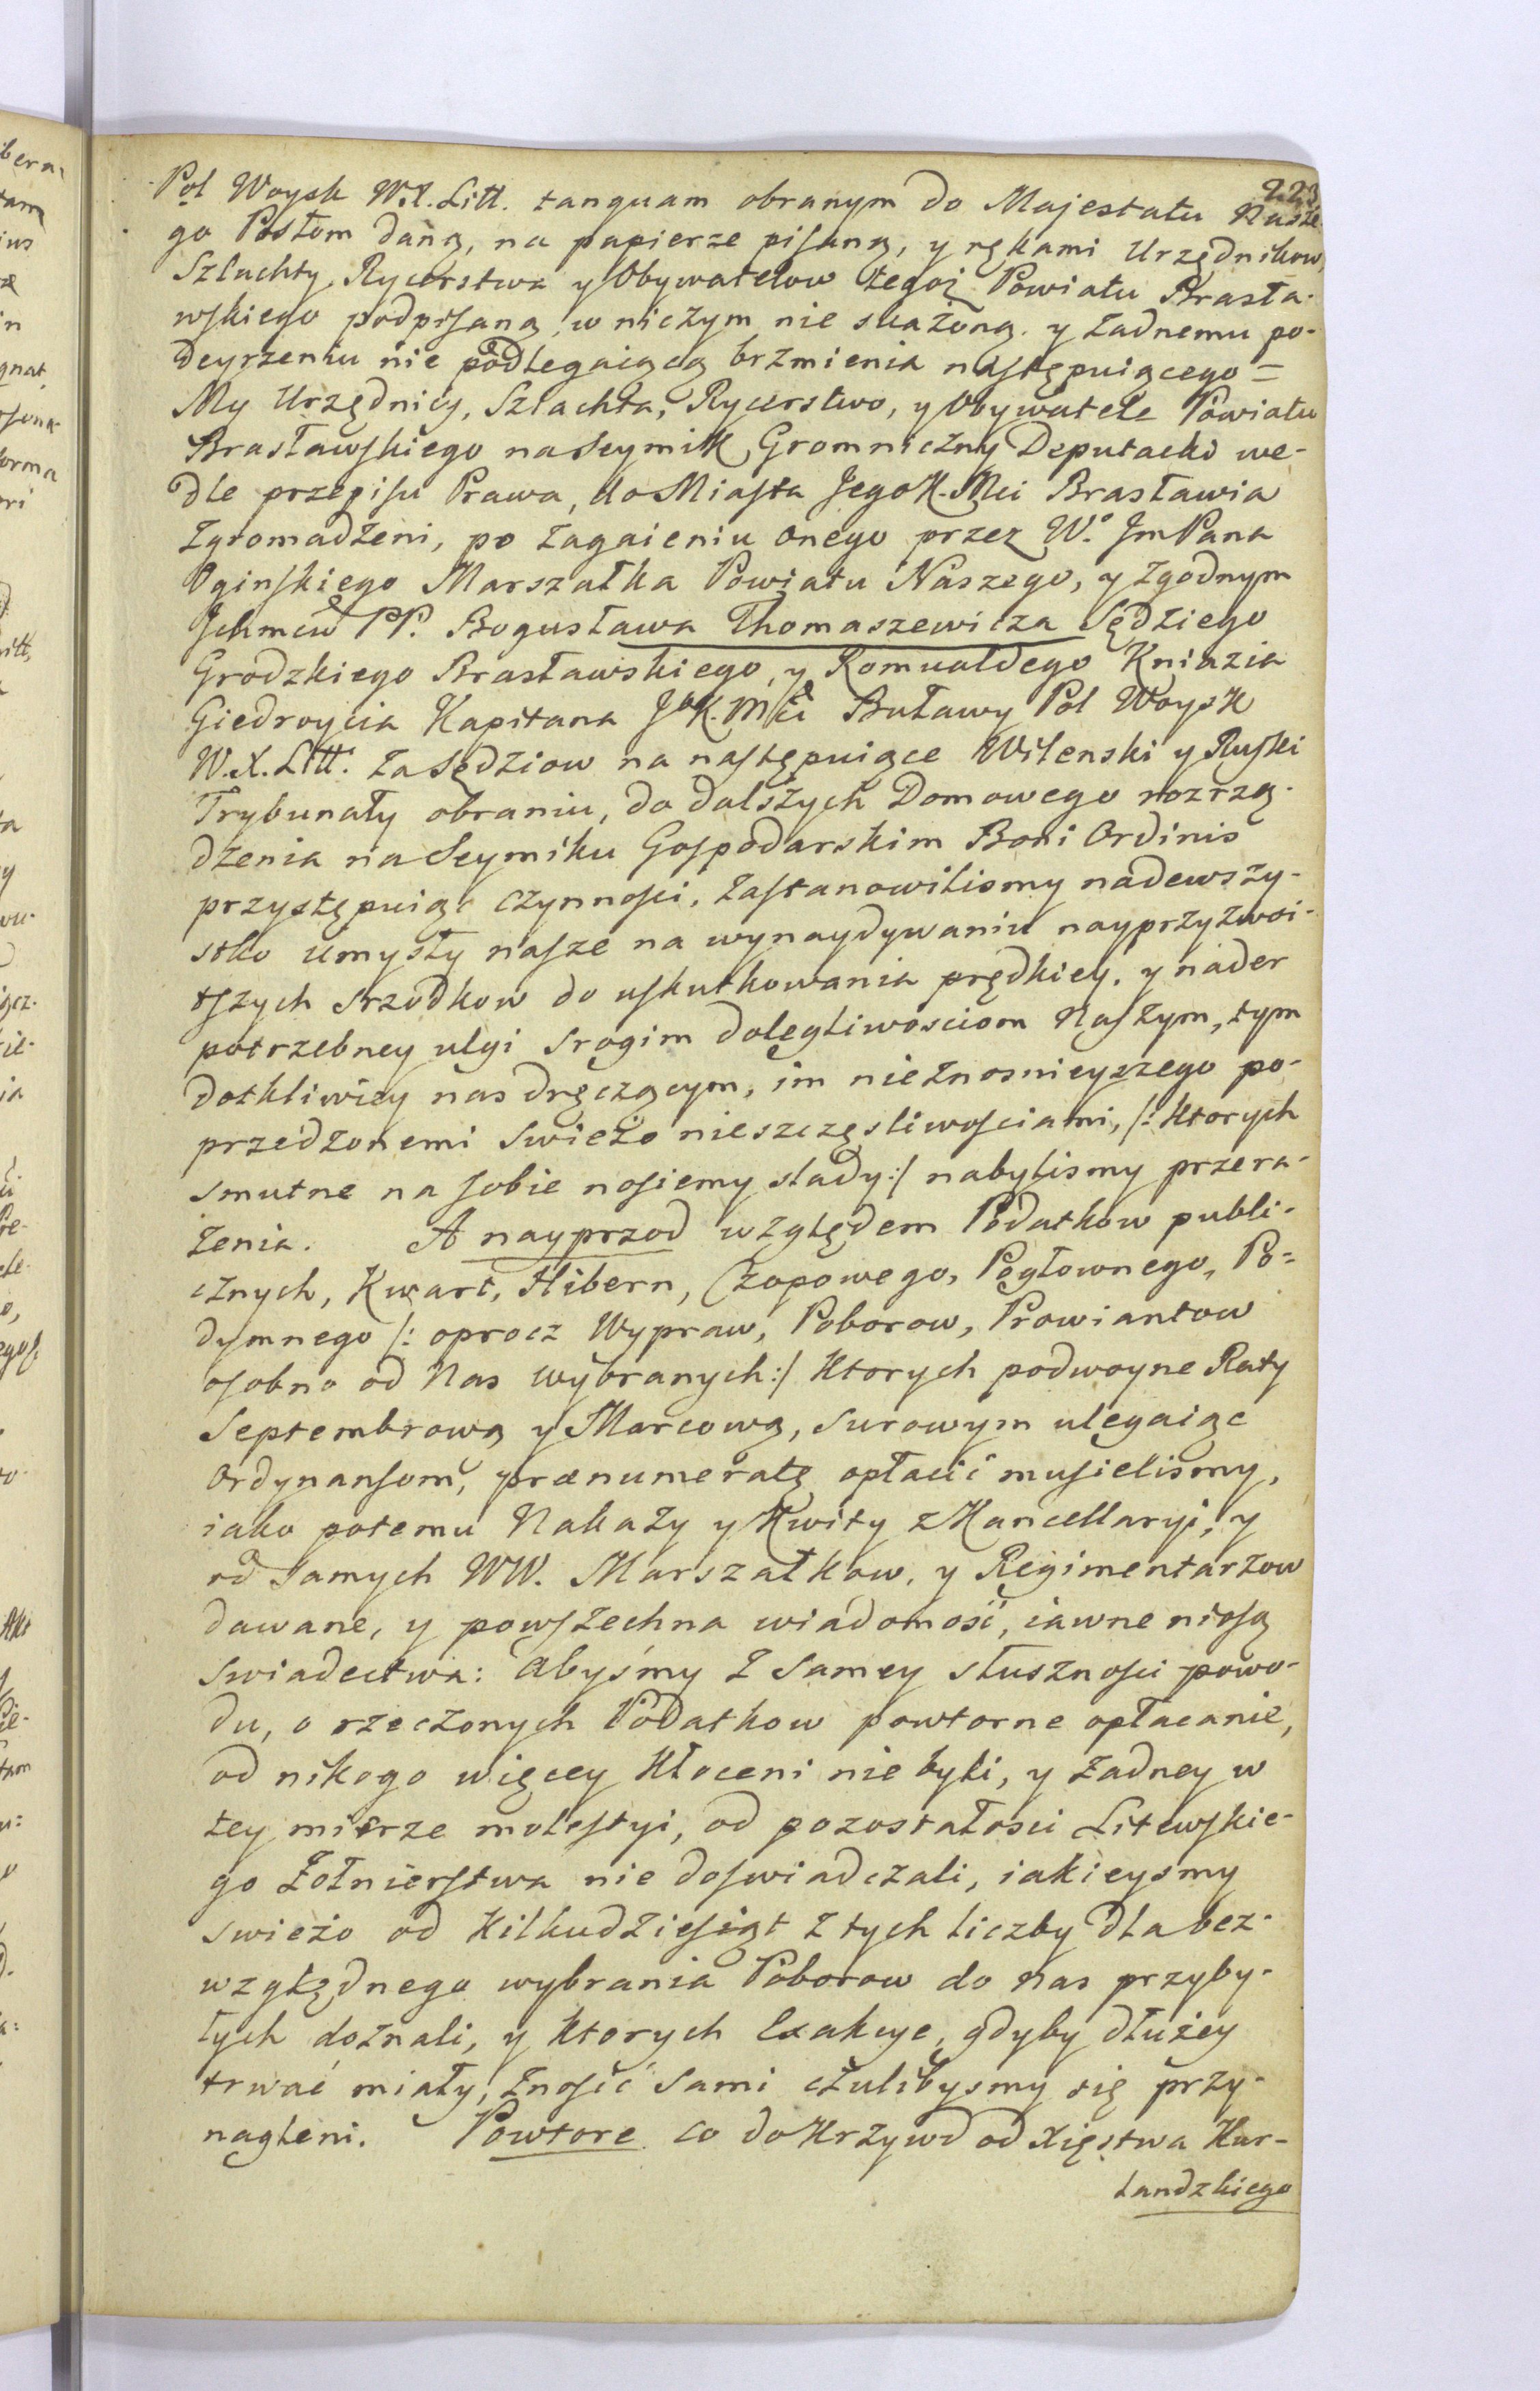 223
Pol Woysk W.X. Litt. tanquam obranym do Majestatu Nasze-
go Posłom daną, na papierze pisaną, y rękami Urzędnikow,
Szlachty, Rycerstwa y Obywatelow tegoż Powiatu Brasła-
wskiego podpisaną, w niczym nie skażoną, y żadnemu po-
deyrzeniu nie podlegaiącą brzmienia następuiącego =
My Urzędnicy, Szlachta, Rycerstwo, y Obywatele Powiatu
Brasławskiego na Seymik Gromniczny Deputacki we-
dle przepisu Prawa, do Miasta Jego K. Mci Brasławia
zgromadzeni, po zagaieniu onego przez Wo. Jm Pana
Oginskiego Marszałka Powiatu Naszego, y zgodnym
Jchmciw PP. Bogusława Thomaszewicza Sędziego
Grodzkiego Brasławskiego, y Romualdego Kniazia
Giedroycia Kapitana JoK. Mci Buławy Pol Woysk
W.X. Litt. za Sędziow na następuiące Wilenski y Ruski
Trybunały obraniu, do dalszych Domowego rozrzą-
dzenia na Seymiku Gospodarskim Boni Ordinis
przystępuiąc czynnosci, zastanowilismy nadewszy-
stko umysły nasze na wynaydywaniu nayprzyzwoi-
tszych srzodkow do uskutkowania prędkiey, y nader
potrzebney ulgi srogim dolegliwosciom Naszym, tym
dotkliwiey nas dręczącym, im nieznosnieyszego po-
przedzonemi swieżo nieszczęsliwosciami, /: ktorych
smutne na sobie nosiemy slady :/ nabylismy przera-
żenia. A nayprzod względem Podatkow publi-
cznych, Kwart, Hibern, Czopowego, Pogłownego, Po=
dymnego /: oprocz Wypraw, Poborow, Prowiantow
osobno od Nas wybranych :/ ktorych podwoyne Raty
Septembrową y Marcową, surowym ulegaiąc
Ordynansom, prænumeratę opłacić musielismy,
iako potemu Nakazy y Kwity z Kancellaryi, y
od samych WW. Marszałkow, y Regimentarzow
dawane, y powszechna wiadomość, iawne niosą
swiadectwa: Abyśmy z samey słusznosci powo-
du, o rzeczonych Podatkow powtorne opłacanie,
od nikogo więcey kłoceni nie byli, y żadney w
tey mierze molestyi, od pozostałosci Litewskie-
go Żołnierstwa nie doswiadczali, iakieysmy
swieżo od kilkudziesiąt z tych liczby dla bez-
względnego wybrania Poborow do nas przyby-
łych doznali, y ktorych Exakcye, gdyby dłużey
trwać miały, znosić sami czulibysmy się przy-
nagleni. Powtore co do Krzywd od Xięstwa Kur-
landzkiego